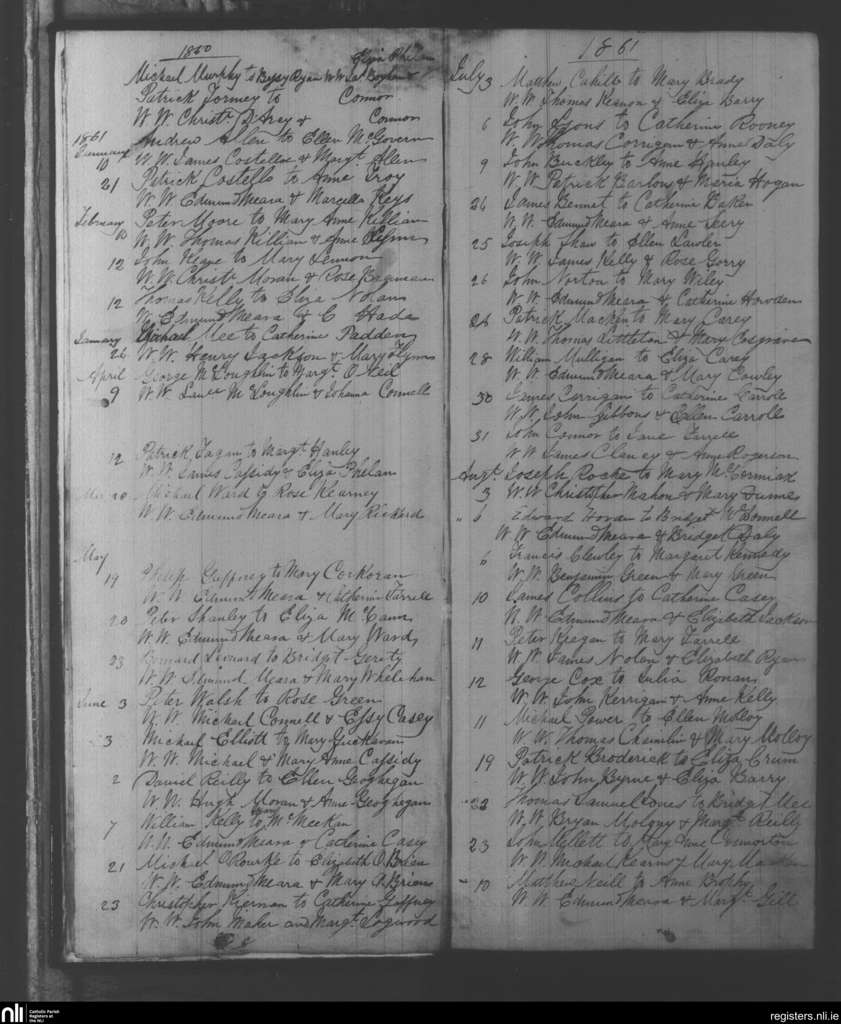 1860
Eliza Phelan
Michael Murphy to Bessy Ryan W W Jas
Patrick Torney to Connor
W. W. Christr D'Arcy & Connor
1861
Andrew Allen to Ellen McGovern
January 10 W. W. James Costelloe & Margt. Allen
21 Patrick Costello to Anne Troy
W. W. Edmund Meara & Marcella Keys
February Peter Moore to Mary Anne Killian
10 W. W. Thomas Killian & Anne Flynn
12 John Keane to Mary Lennon
W. W. Christr Moran & Rose
12 Thomas Kelly to Eliza Nolan
W. Edmund Meara & C
January Michael Mee to Catherine Padden
26 W. W. Henry Jackson & Mary Flynn
April George McLoughlin to Margt. O Neil
9 W. W. McLoughlin & Johanna Connell
12 Patrick Fagan to Margt Hanley
W. W. James Cassidy & Eliza Phelan
20 Michael Ward to Rose Kearney
W W. Edmund Meara & Mary Rickard
May
19 Philip Gaffney to Mary Corkoran
W. W. Edmund Meara & Catherine Farrell
20 Peter Shanley to Eliza McCann
W W. Edmund Meara & Mary Ward
23 Bernard Leonard to Bridget Geraty
W W Edmund Meara & Mary Whelehan
June 3 Peter Walsh to Rose Green
W. W. Michael Connell & Essy Casey
3 Michael Elliott to Mary
W. W. Michael & Mary Anne Cassidy
2 Daniel Reilly to Ellen Geoghegan
W. W. Hugh Moran & Anne Geoghegan
7 William Kelly to McMeekan
W. W. Edmund Meara & Catherine Casey
21 Michael O'Rourke to Elizabeth O'Brien
W. W. Edmund Meara & Mary O'Brien
23 Christopher Kiernan to Catherine Gaffney
W. W. John Maher and Margt.
1861
July 3 Matthew Cahill to Mary Brady
W. W. Thomas Kearon & Eliza Barry
6 John Lyons to Catherine Rooney
W. W. Thomas Corrigan & Anne Daly
9 John Buckley to Anne Hanley
W. W. Patrick Barlow & Maria Hogan
26 James Bennet to Catherine Baker
W. W. Edmund Meara & Anne Leery
25 Joseph Shaw to Ellen Lawler
W. W. James Kelly & Rose Gorry
26 John Norton to Mary Wiley
W W. Edmund Meara & Catherine Howden
26 Patrick Mackin to Mary Carey
W. W. Thomas Littleton & Mary Cosgrave
28 William Mulligan to Eliza Carey
W. W. Edmund Meara & Mary Cowley
30 James Corrigan to Catherine Carroll
W. W. John Gibbons & Ellen Carroll
31 John Connor to Jane Farrell
W W James Clancy & Anne Rogerson
Augt. Joseph Roche to Mary McCormick
3 W W Christopher Mahon & Mary
" 6 Edward Horan to Bridget McDonnell
W W Edmund Meara & Bridget Daly
6 Francis Clewley to Margaret Kennedy
W. W. Benjamin Green & Mary Green
10 James Collins to Catherine Casey
W. W. Edmund Meara & Elizabeth Jackson
11 Peter Keegan to Mary Farrell
W. W. James Nolan & Elizabeth Ryan
12 George Cox to Julia Ronan
W. W. John Kerrigan & Anne Kelly
11 Michael Power to Ellen Molloy
W W. Thomas & Mary Molloy
19 Patrick Broderick to Eliza Crum
W. W. John Byrne & Eliza Barry
22 Thomas Samuel Jones to Bridget Mee
W. W. Bryan Molony & Margt Reilly
23 John Kellett to Mary Anne
W. W. Michael Kearns & Mary
10 Matthew Neill to Anne Brophy
W W. Edmund Meara & Margt. Gill
nli
Catholic Parish Registers at the NLI
registers.nli.ie